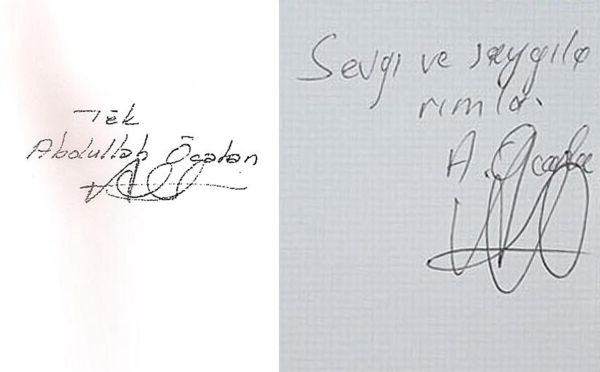 Tek
Abdullah Öcalan
Sevgi ve saygıla
rımla.
A. Öcalan